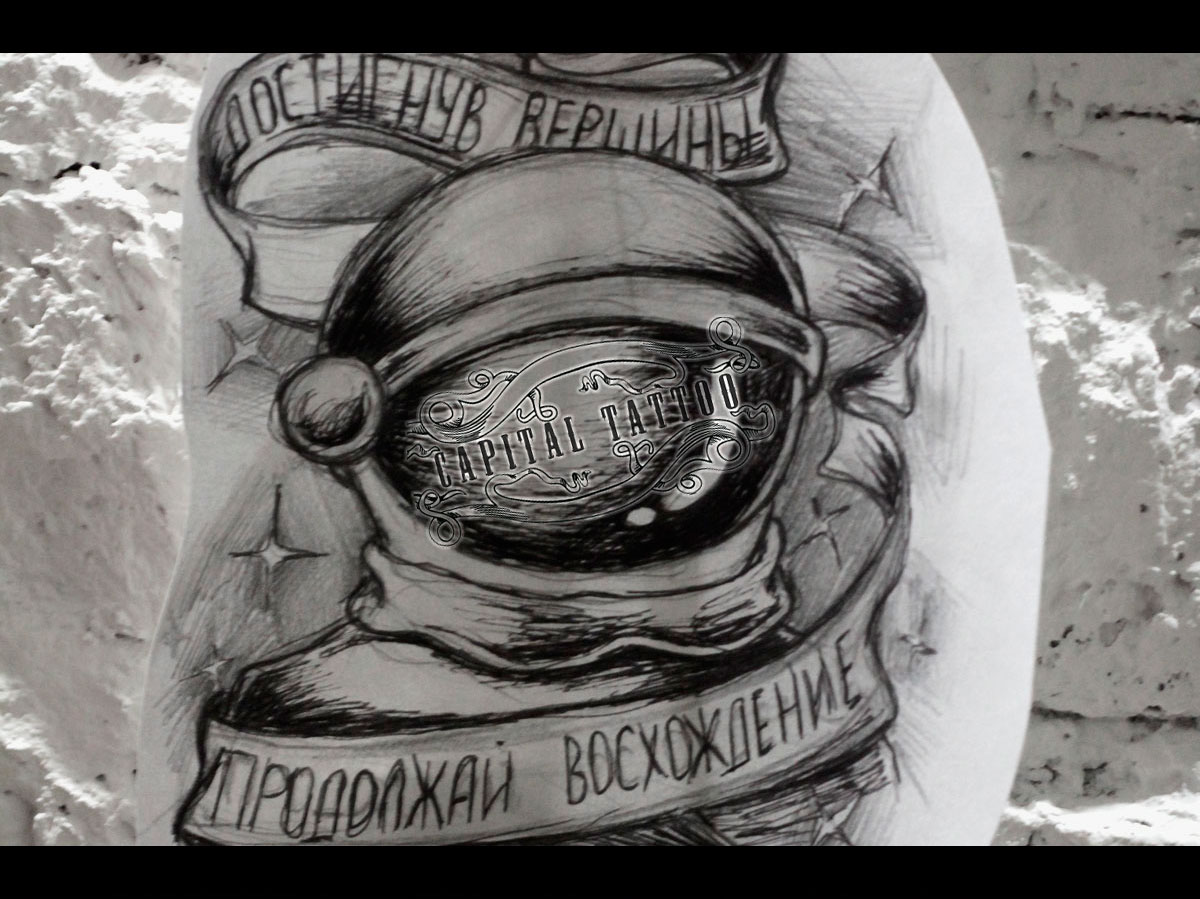 ДОСТИГНУВ ВЕРШИНЫ
CAPITAL TATTOO
ПРОДОЛЖАЙ ВОСХОЖДЕНИЕ